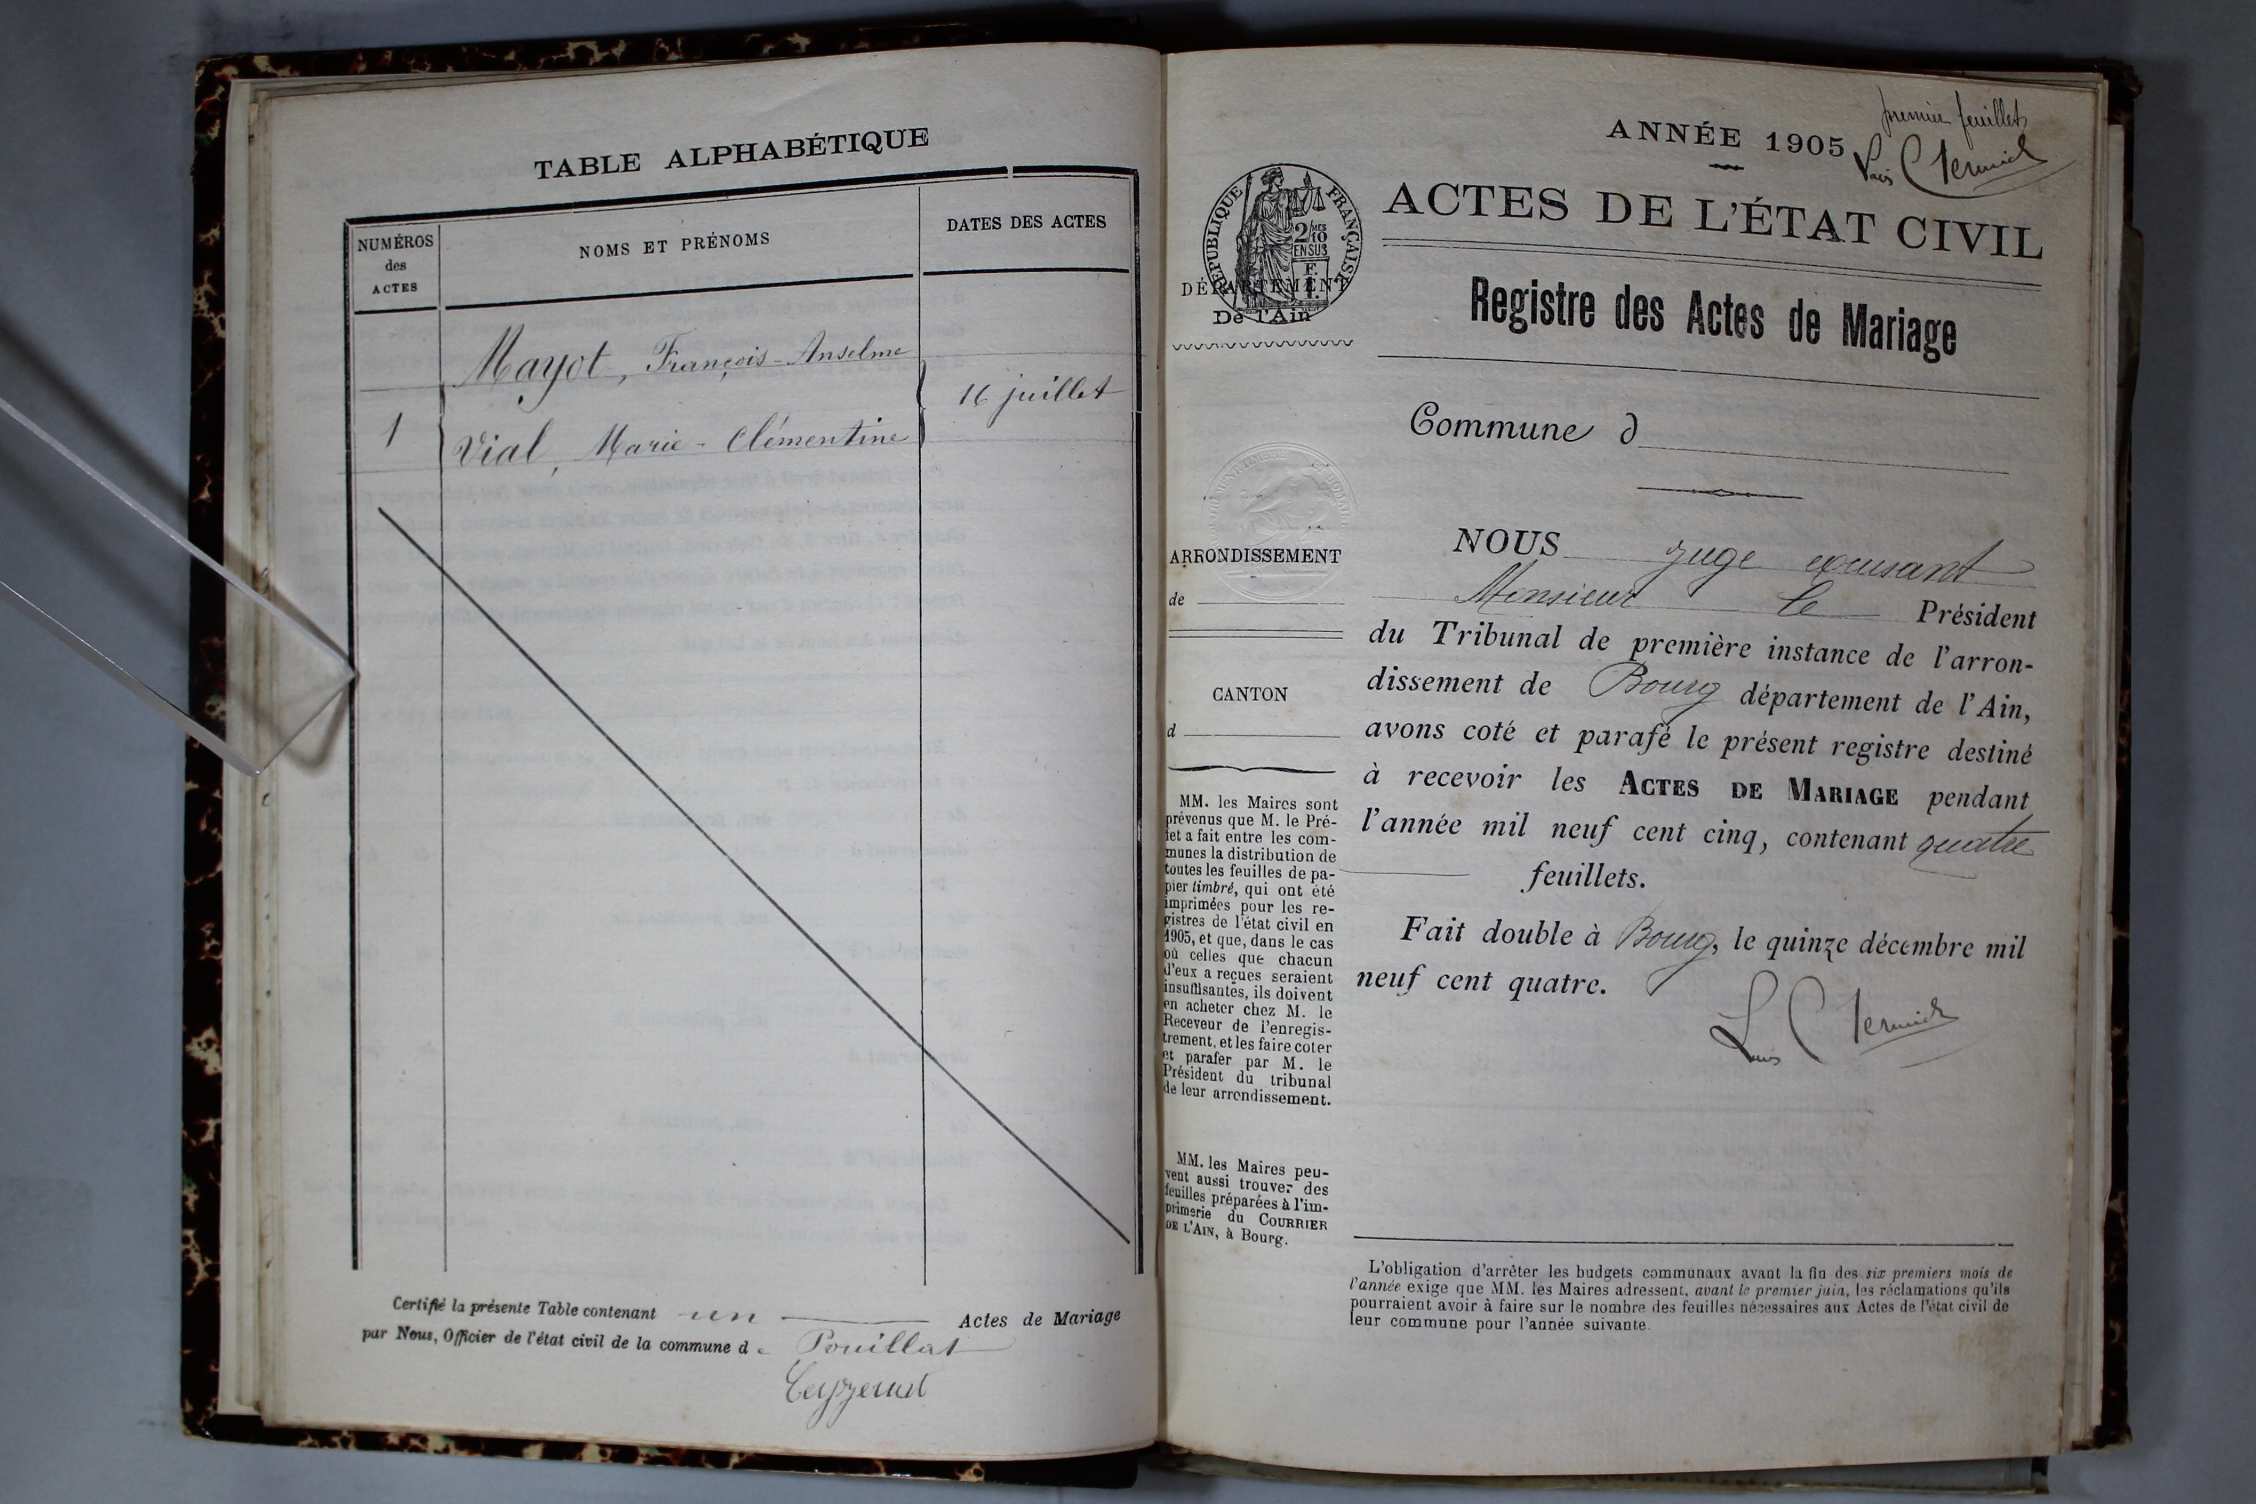 TABLE ALPHABÉTIQUE
NUMÉROS
des
ACTES
NOMS ET PRÉNOMS
DATES DES ACTES
Mayot, François-Anselme
16 juillet
1
Vial, Marie-Clémentine
Certifié la présente Table contenant un Actes de Mariage
par Nous, Officier de l'état civil de la commune de Pouillat
premier feuillet
Louis
ANNÉE 1905
RÉPUBLIQUE FRANÇAISE
2/10
EN SUS
ACTES DE L'ÉTAT CIVIL
DÉPARTEMENT
De l'Ain
Registre des Actes de Mariage
Commune d
ARRONDISSEMENT
de
CANTON
d
MM. les Maires sont
prévenus que M. le Pré-
fet a fait entre les com-
munes la distribution de
toutes les feuilles de pa-
pier timbré, qui ont été
imprimées pour les re-
gistres de l'état civil en
1905, et que, dans le cas
où celles que chacun
d'eux a reçues seraient
insuffisantes, ils doivent
en acheter chez M. le
Receveur de l'enregis-
trement, et les faire coter
et parafer par M. le
Président du tribunal
de leur arrondissement.
MM. les Maires peu-
vent aussi trouver des
feuilles préparées à l'im-
primerie du COURRIER
DE L'AIN, à Bourg.
NOUS juge excusant
Monsieur le Président
du Tribunal de première instance de l'arron-
dissement de Bourg département de l'Ain,
avons coté et parafé le présent registre destiné
à recevoir les ACTES DE MARIAGE pendant
l'année mil neuf cent cinq, contenant quatre
feuillets.
Fait double à Bourg, le quinze décembre mil
neuf cent quatre.
Louis
L'obligation d'arrêter les budgets communaux avant la fin des six premiers mois de
l'année exige que MM. les Maires adressent, avant le premier juin, les réclamations qu'ils
pourraient avoir à faire sur le nombre des feuilles nécessaires aux Actes de l'état civil de
leur commune pour l'année suivante.